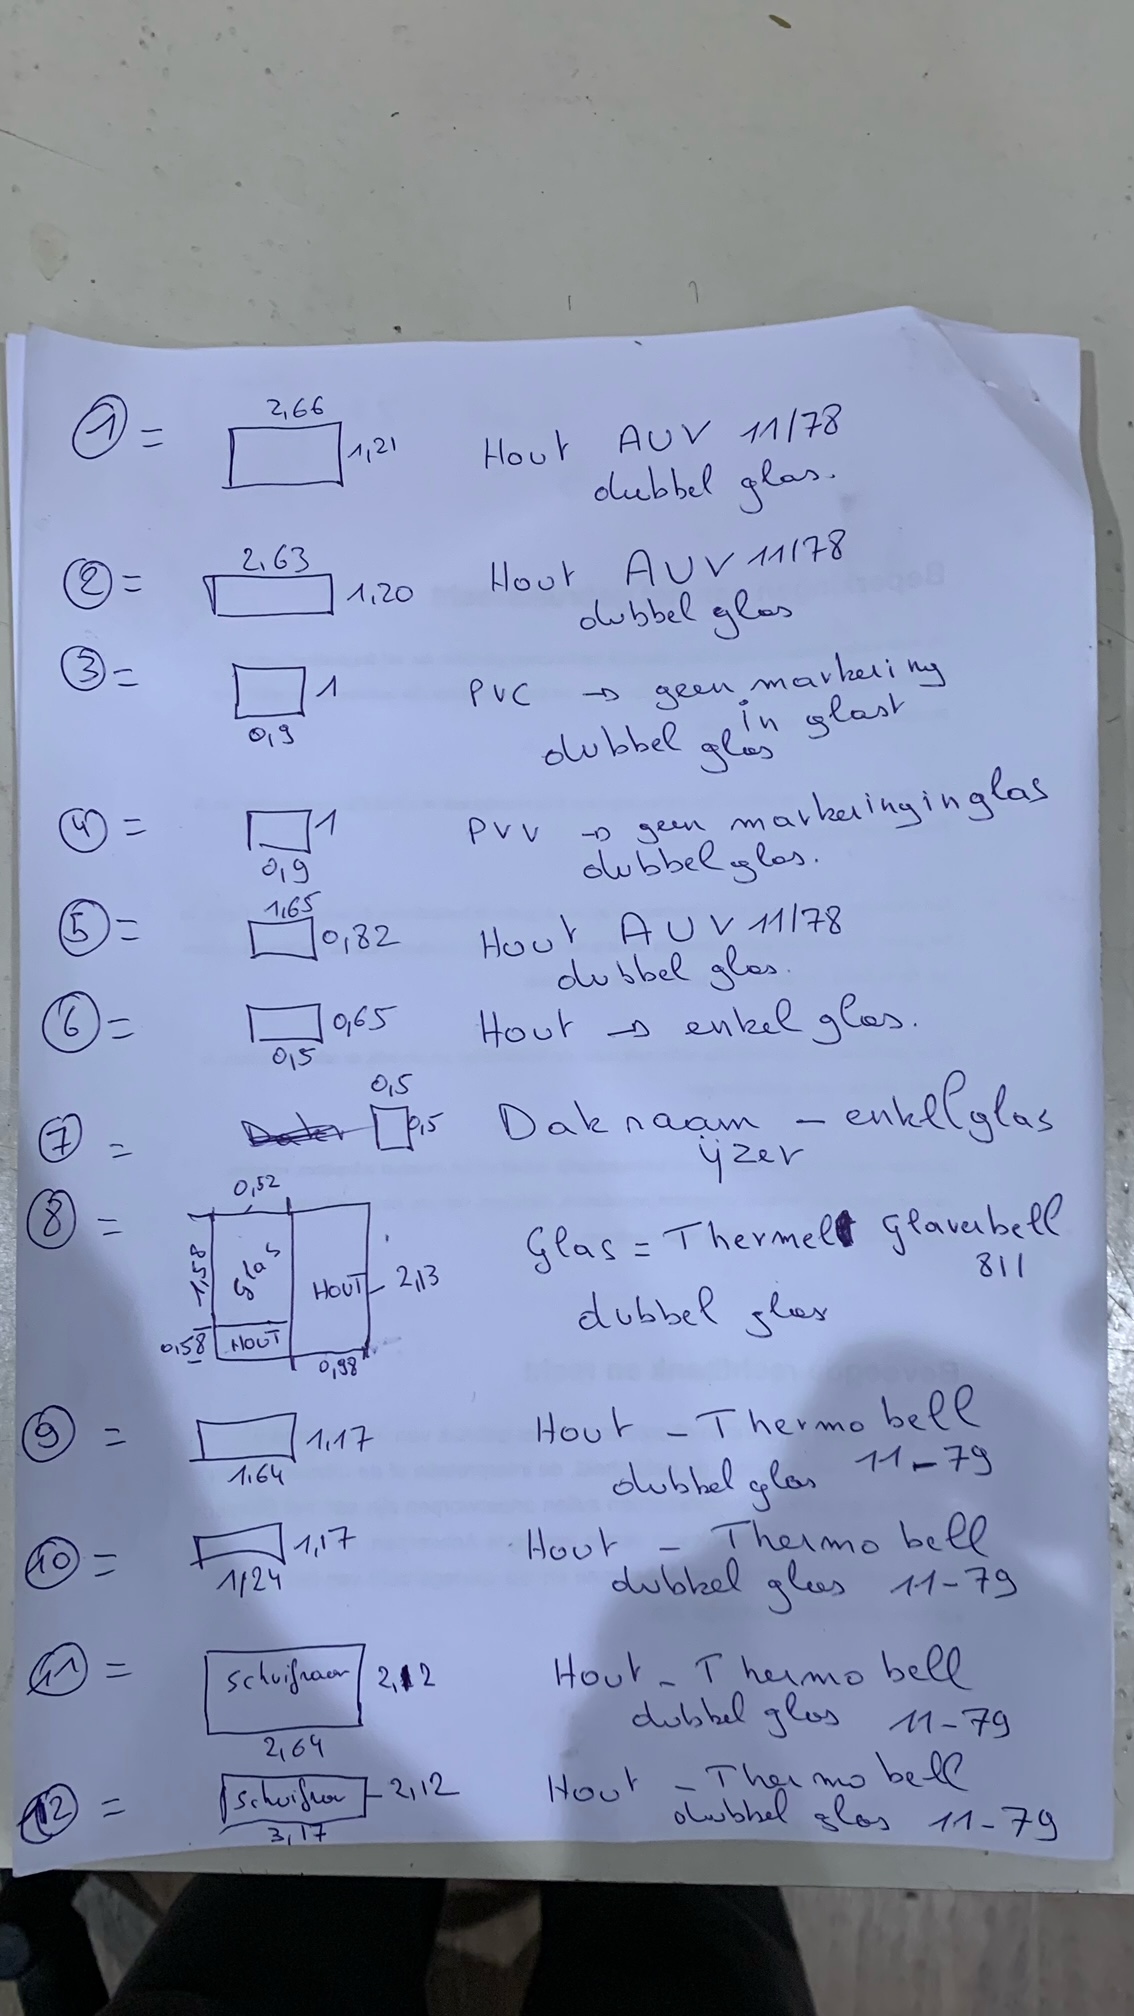 1 =
2,66
1,21
Hout AUV 11/78
dubbel glas.
2 =
2,63
1,20
Hout AUV 11/78
dubbel glas
3 =
1
0,9
PVC → geen markering
in glast
dubbel glas
4 =
1
0,9
PVV → geen markering in glas
dubbel glas.
5 =
1,65
0,82
Hout AUV 11/78
dubbel glas.
6 =
0,65
0,5
Hout → enkel glas.
7 =
0,5
0,5
Dak naam - enkel glas
ijzer
8 =
0,52
1,58
Glas
HOUT
2,13
0,58
HOUT
0,98
Glas = Thermel Glaverbell
811
dubbel glas
9 =
1,17
1,64
Hout - Thermo bell
dubbel glas 11-79
10 =
1,17
1,24
Hout - Thermo bell
dubbel glas 11-79
11 =
Schuifraam
2,12
2,64
Hout - Thermo bell
dubbel glas 11-79
12 =
Schuifraam
2,12
3,17
Hout - Thermo bell
dubbel glas 11-79